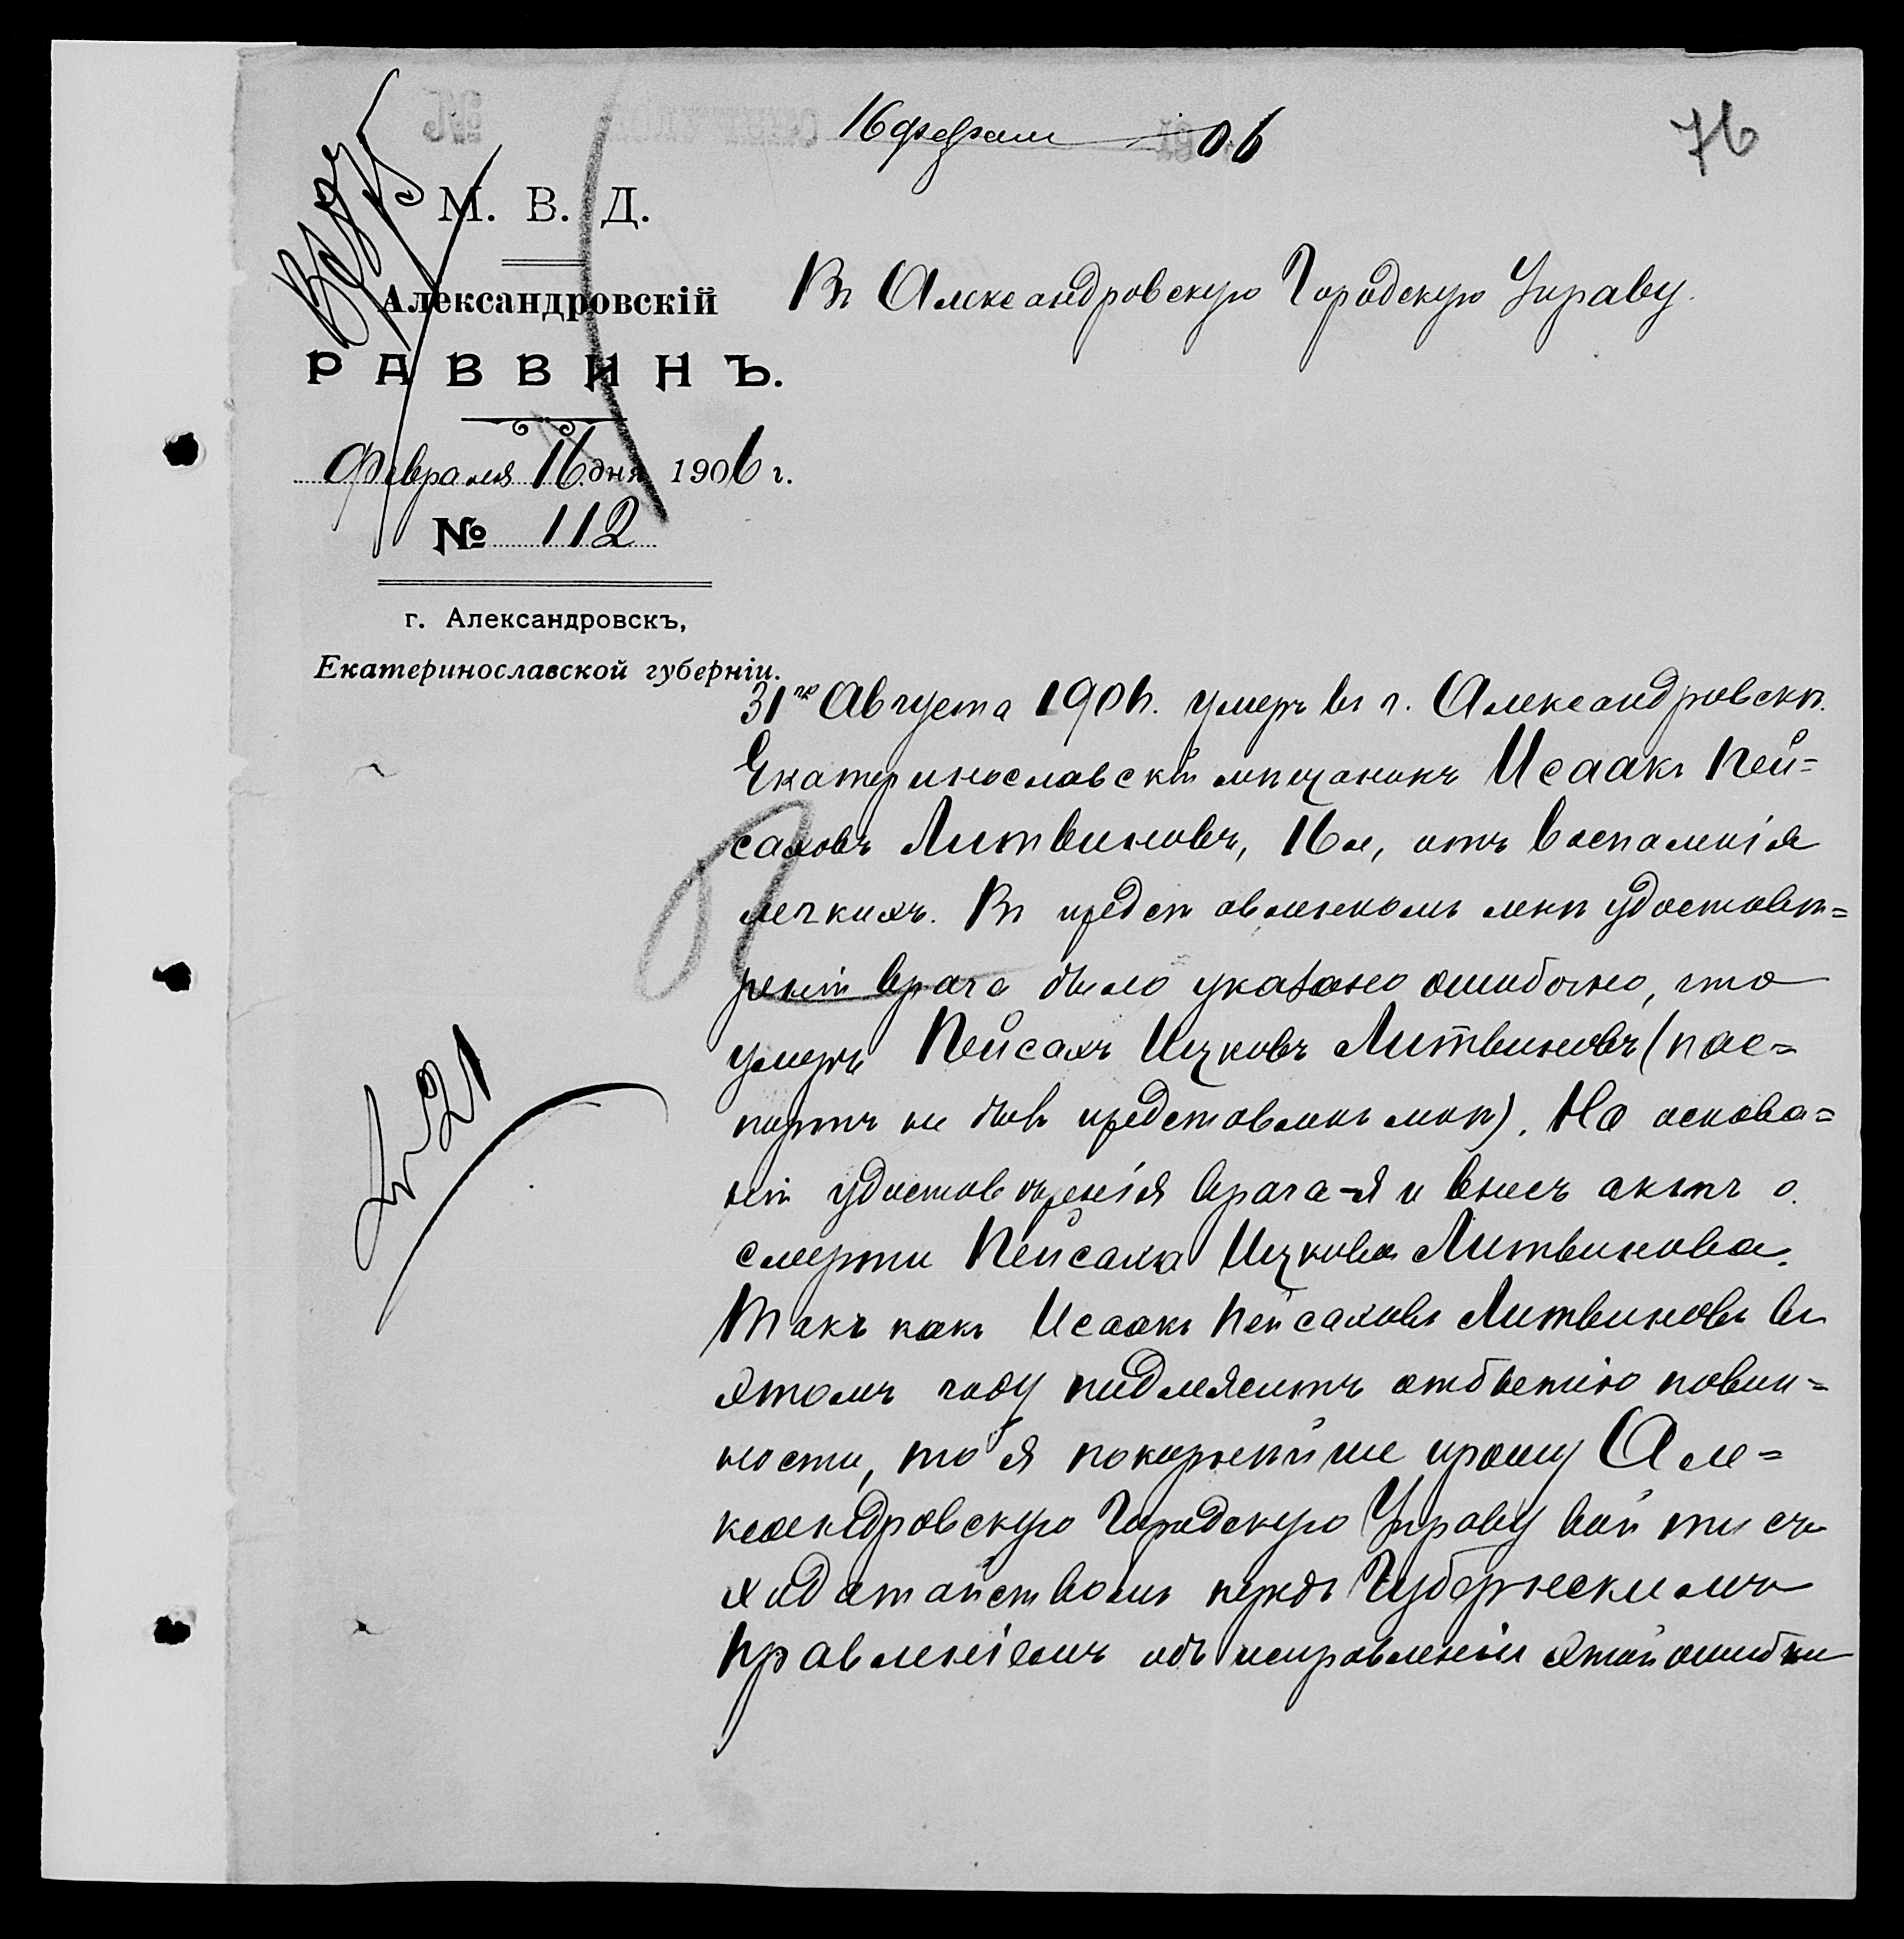 16 февраля 06
76
М. В. Д.
Александровскій
РАВВИНЪ.
Февраля 16 дня 1906 г.
№ 112
г. Александровскъ,
Екатеринославской губерніи.
Въ Александровскую Городскую Управу.
31го Августа 190 г. умеръ въ г. Александровскѣ
Екатеринославскій мѣщанинъ Исаакъ Пей=
саховъ Литвиновъ, 16 л, отъ воспаленія
легкихъ. Въ представленномъ мнѣ удостовѣ=
реніи врача было указано ошибочно, что
умеръ Пейсахъ Ицковъ Литвиновъ (пас=
портъ не былъ представленъ мнѣ). На основа=
ніи удостовѣренія врача я и внесъ актъ о
смерти Пейсаха Ицкова Литвинова.
Такъ какъ Исаакъ Пейсаховъ Литвиновъ въ
этомъ году подлежитъ отбытію повин=
ности, то я покорнѣйше прошу Але=
ксандровскую Городскую Управу войти съ
ходатайствомъ передъ Губернскимъ
Правленіемъ объ исправленіи этой ошибки
№ 21